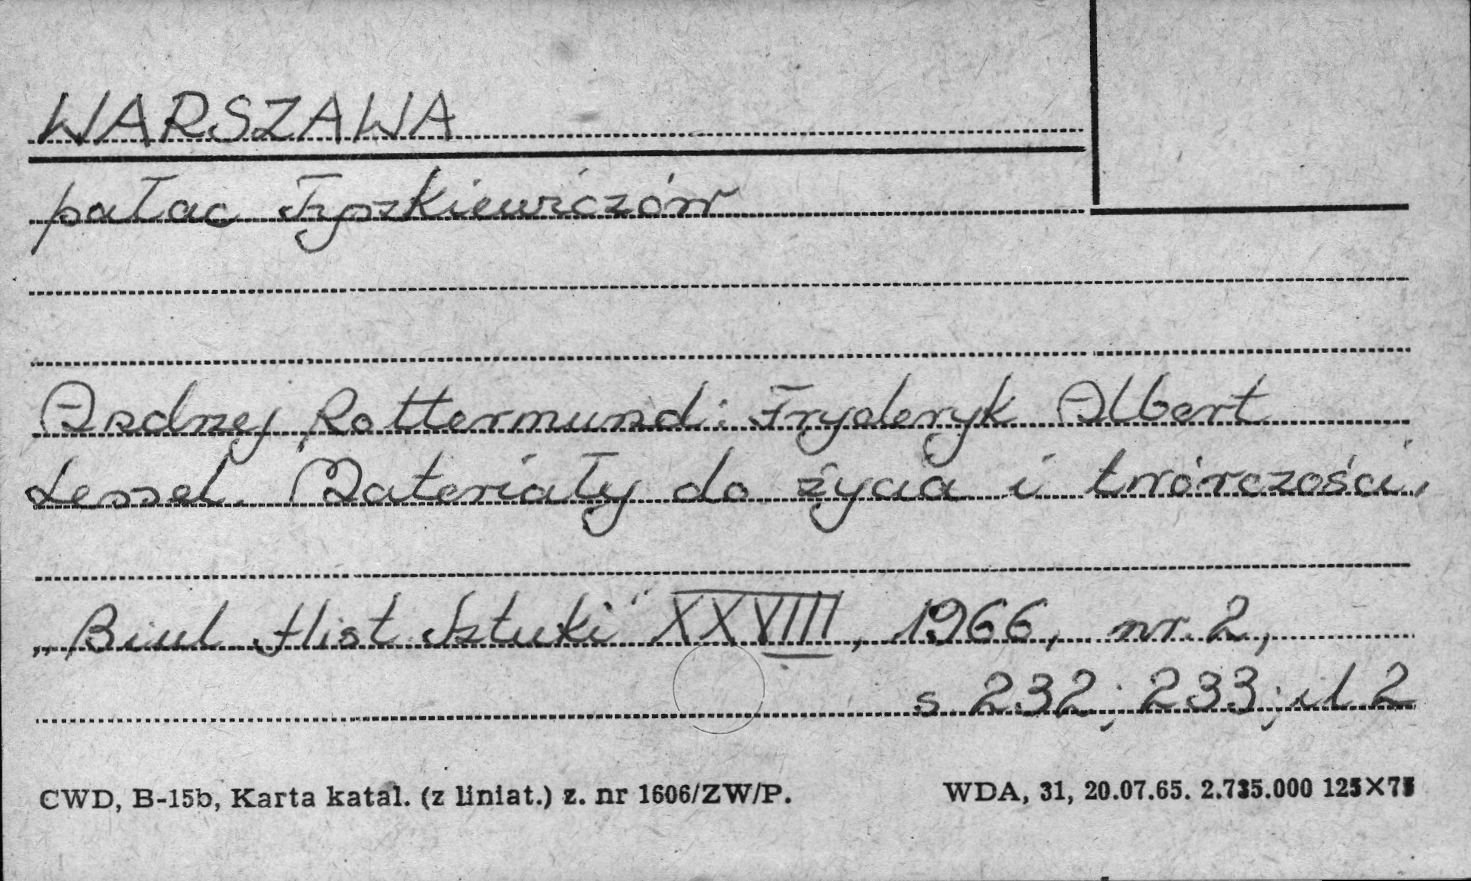 WARSZAWA
pałac Tyszkiewiczów
Andrzej Rottermund: Fryderyk Albert
Lessel. Materiały do życia i twórczości,
„Biul Hist Sztuki" XXVIII, 1966, nr. 2,
s 232; 233; il 2
CWD, B-15b, Karta katal. (z liniat.) z. nr 1606/ZW/P.
WDA, 31, 20.07.65. 2.735.000 125×75